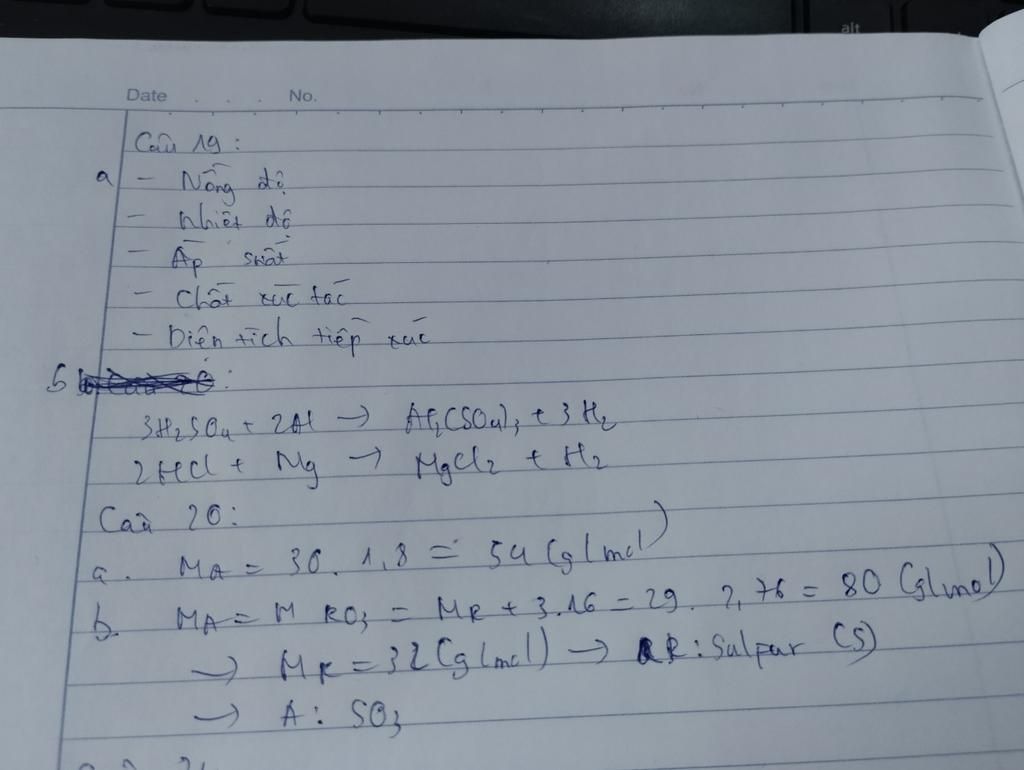 alt
Date . . . No.
Câu 19:
a - Nồng độ
- Nhiệt độ
- Áp suất
- Chất xúc tác
- Diện tích tiếp xúc
b :
3H₂SO₄ + 2Al → Al₂(SO₄)₃ + 3H₂
2HCl + Mg → MgCl₂ + H₂
Câu 20:
a. MA = 30. 1,8 = 54 (g/mol)
b. MA = M RO₃ = MR + 3.16 = 29. 2,76 = 80 (g/mol)
→ MR = 32 (g/mol) → R: Sulpur (S)
→ A: SO₃